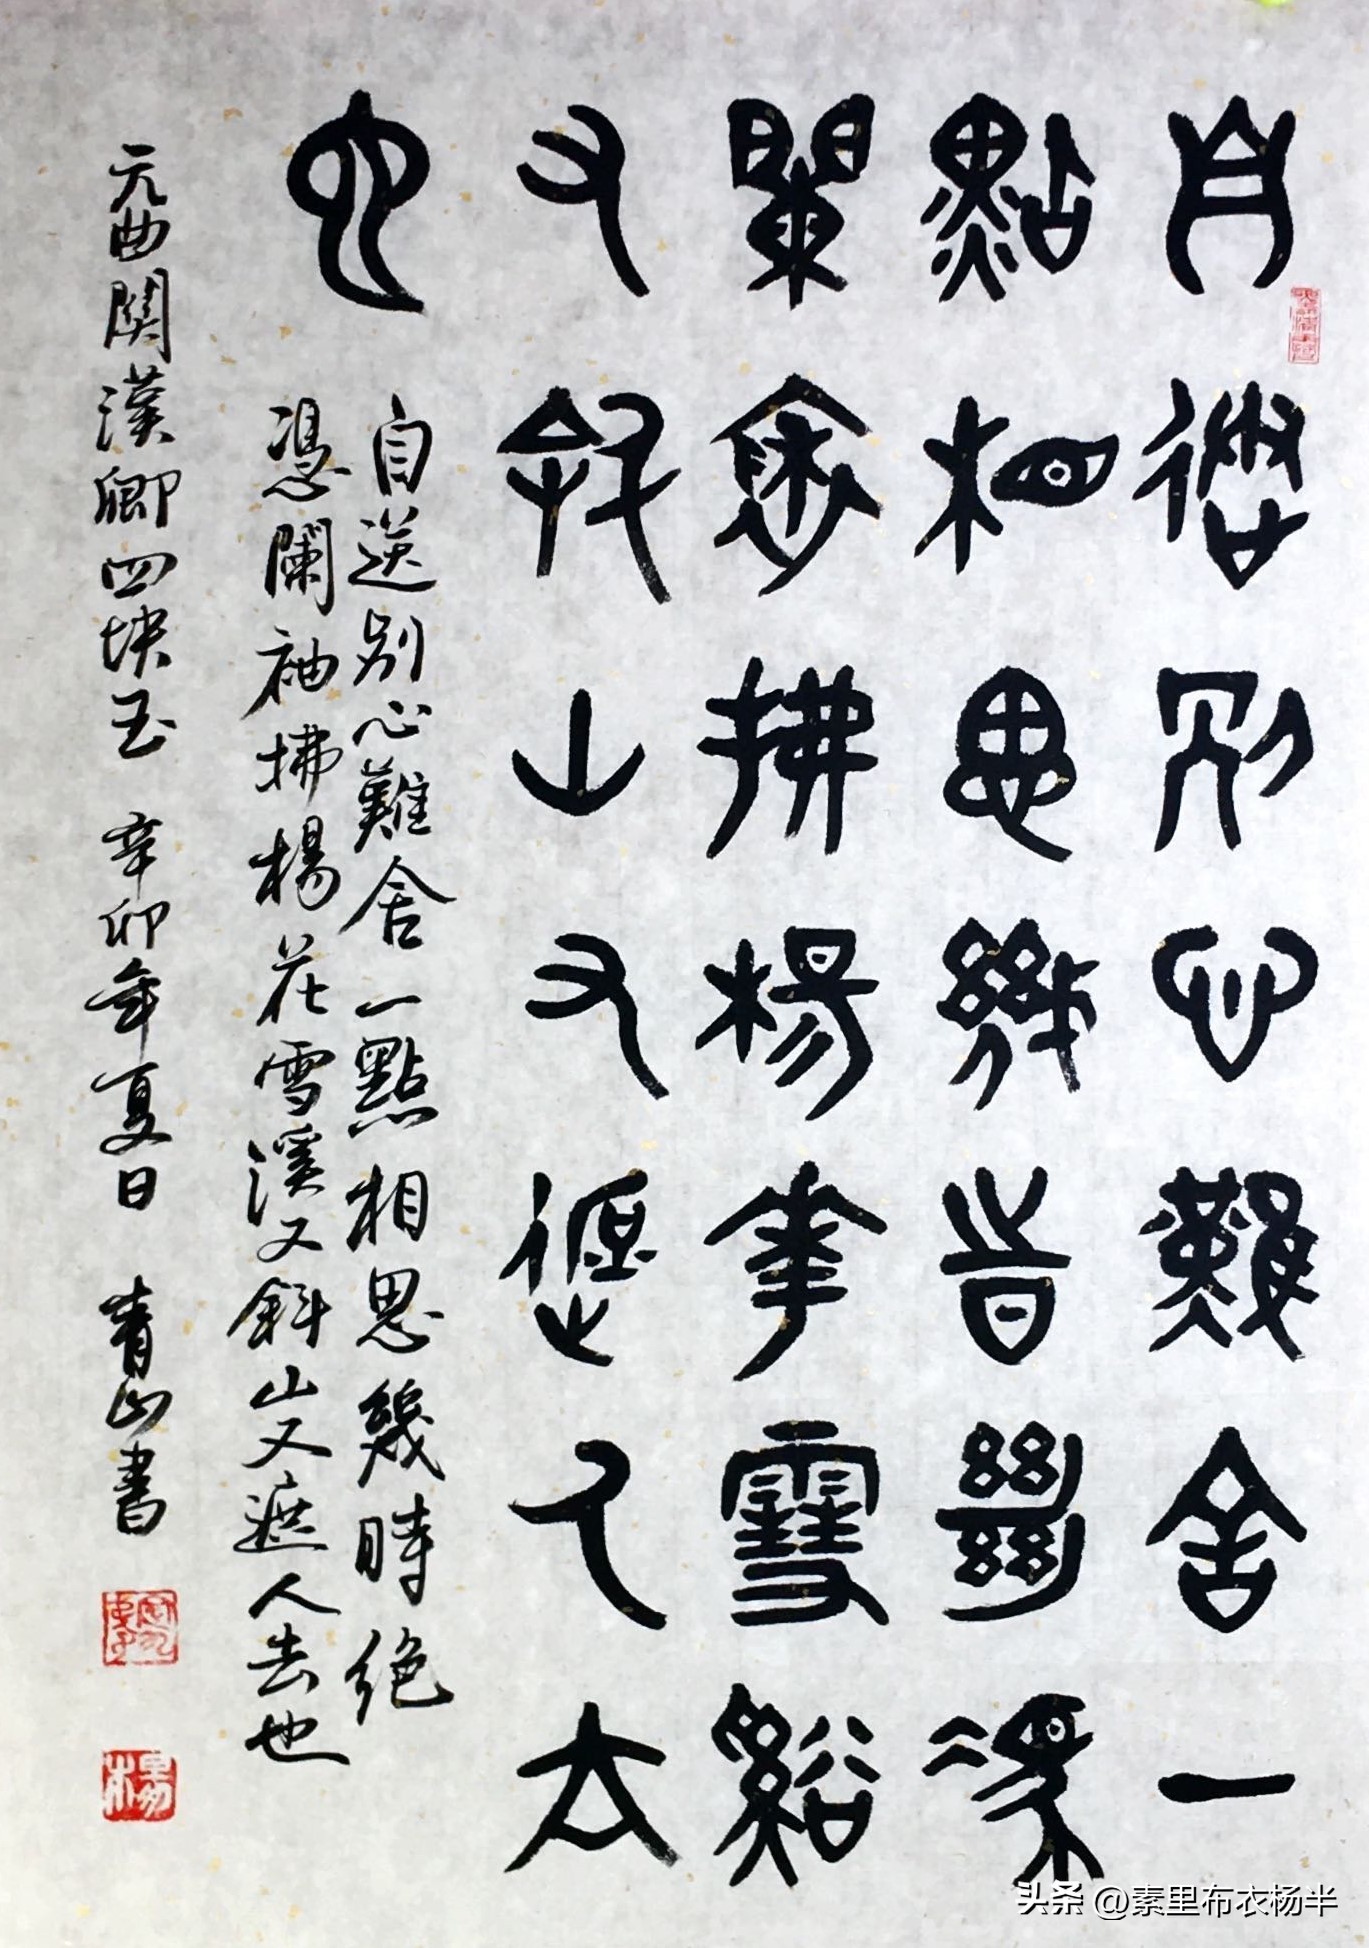 自送别心難舍一
點相思幾時絕憑
闌袖拂楊花雪谿
又斜山又遮人去
也
自送别心難舍一點相思幾時絕
憑闌袖拂楊花雪溪又斜山又遮人去也
元曲關漢卿四塊玉 辛卯年夏日 青山書
楊
头条 @素里布衣杨半